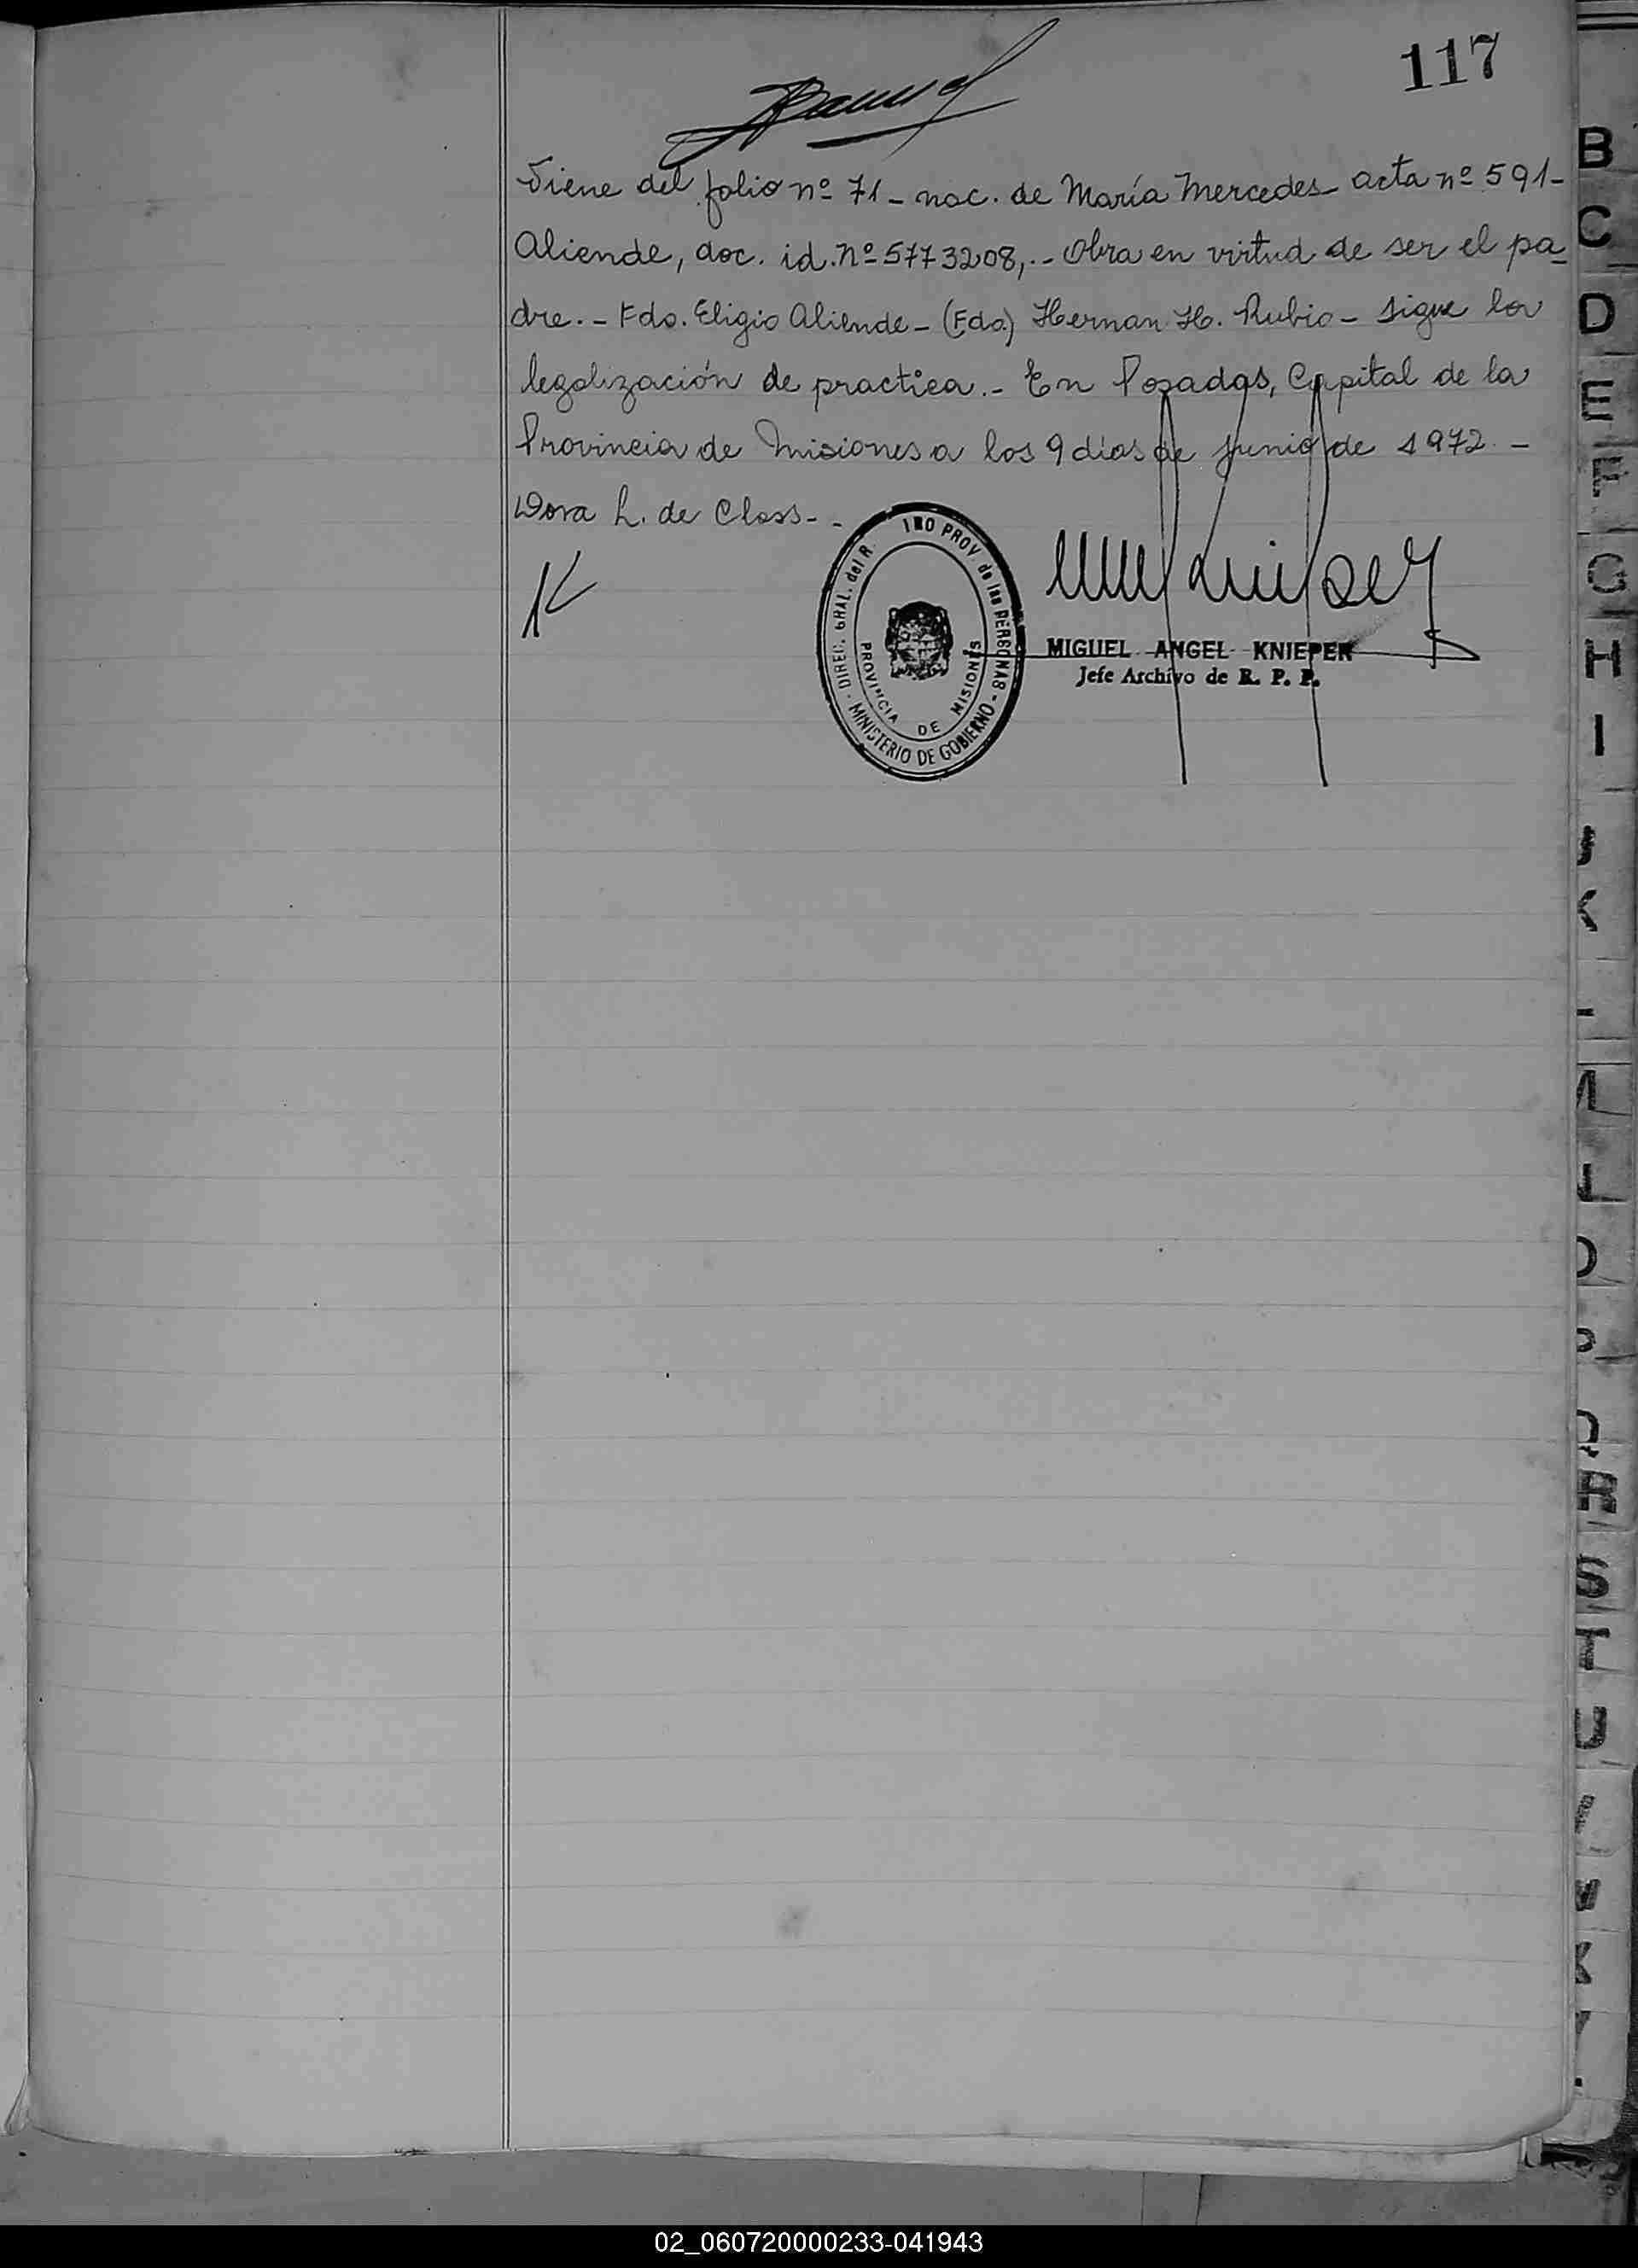 117
Viene del folio nº 71 - nac. de María Mercedes - acta nº 591 -
Aliende, doc. id. nº 5773208, .- Obra en virtud de ser el pa
dre. - Fdo. Eligio Aliende - (Fdo) Hernan H. Rubio - sigue la
legalización de practica. - En Posadas, Capital de la
Provincia de Misiones a los 9 días de junio de 1972. -
Dora L. de Closs - -
DIREC. GRAL. del R. PROV. de las PERSONAS - MINISTERIO DE GOBIERNO -
PROVINCIA DE MISIONES
MIGUEL ANGEL KNIEPER
Jefe Archivo de R. P. P.
B
C
D
E
F
G
H
I
K
R
S
T
U
02_060720000233-041943